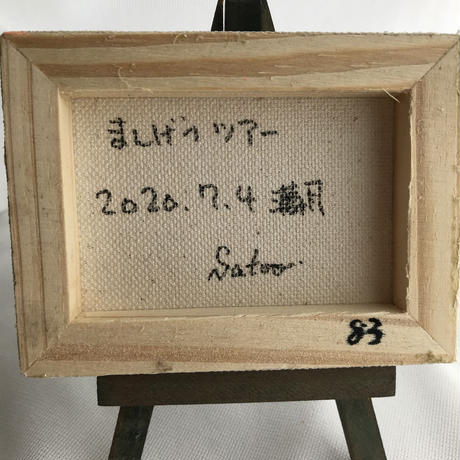 まんげつツアー
2020.7.4 満月
Satoo
83